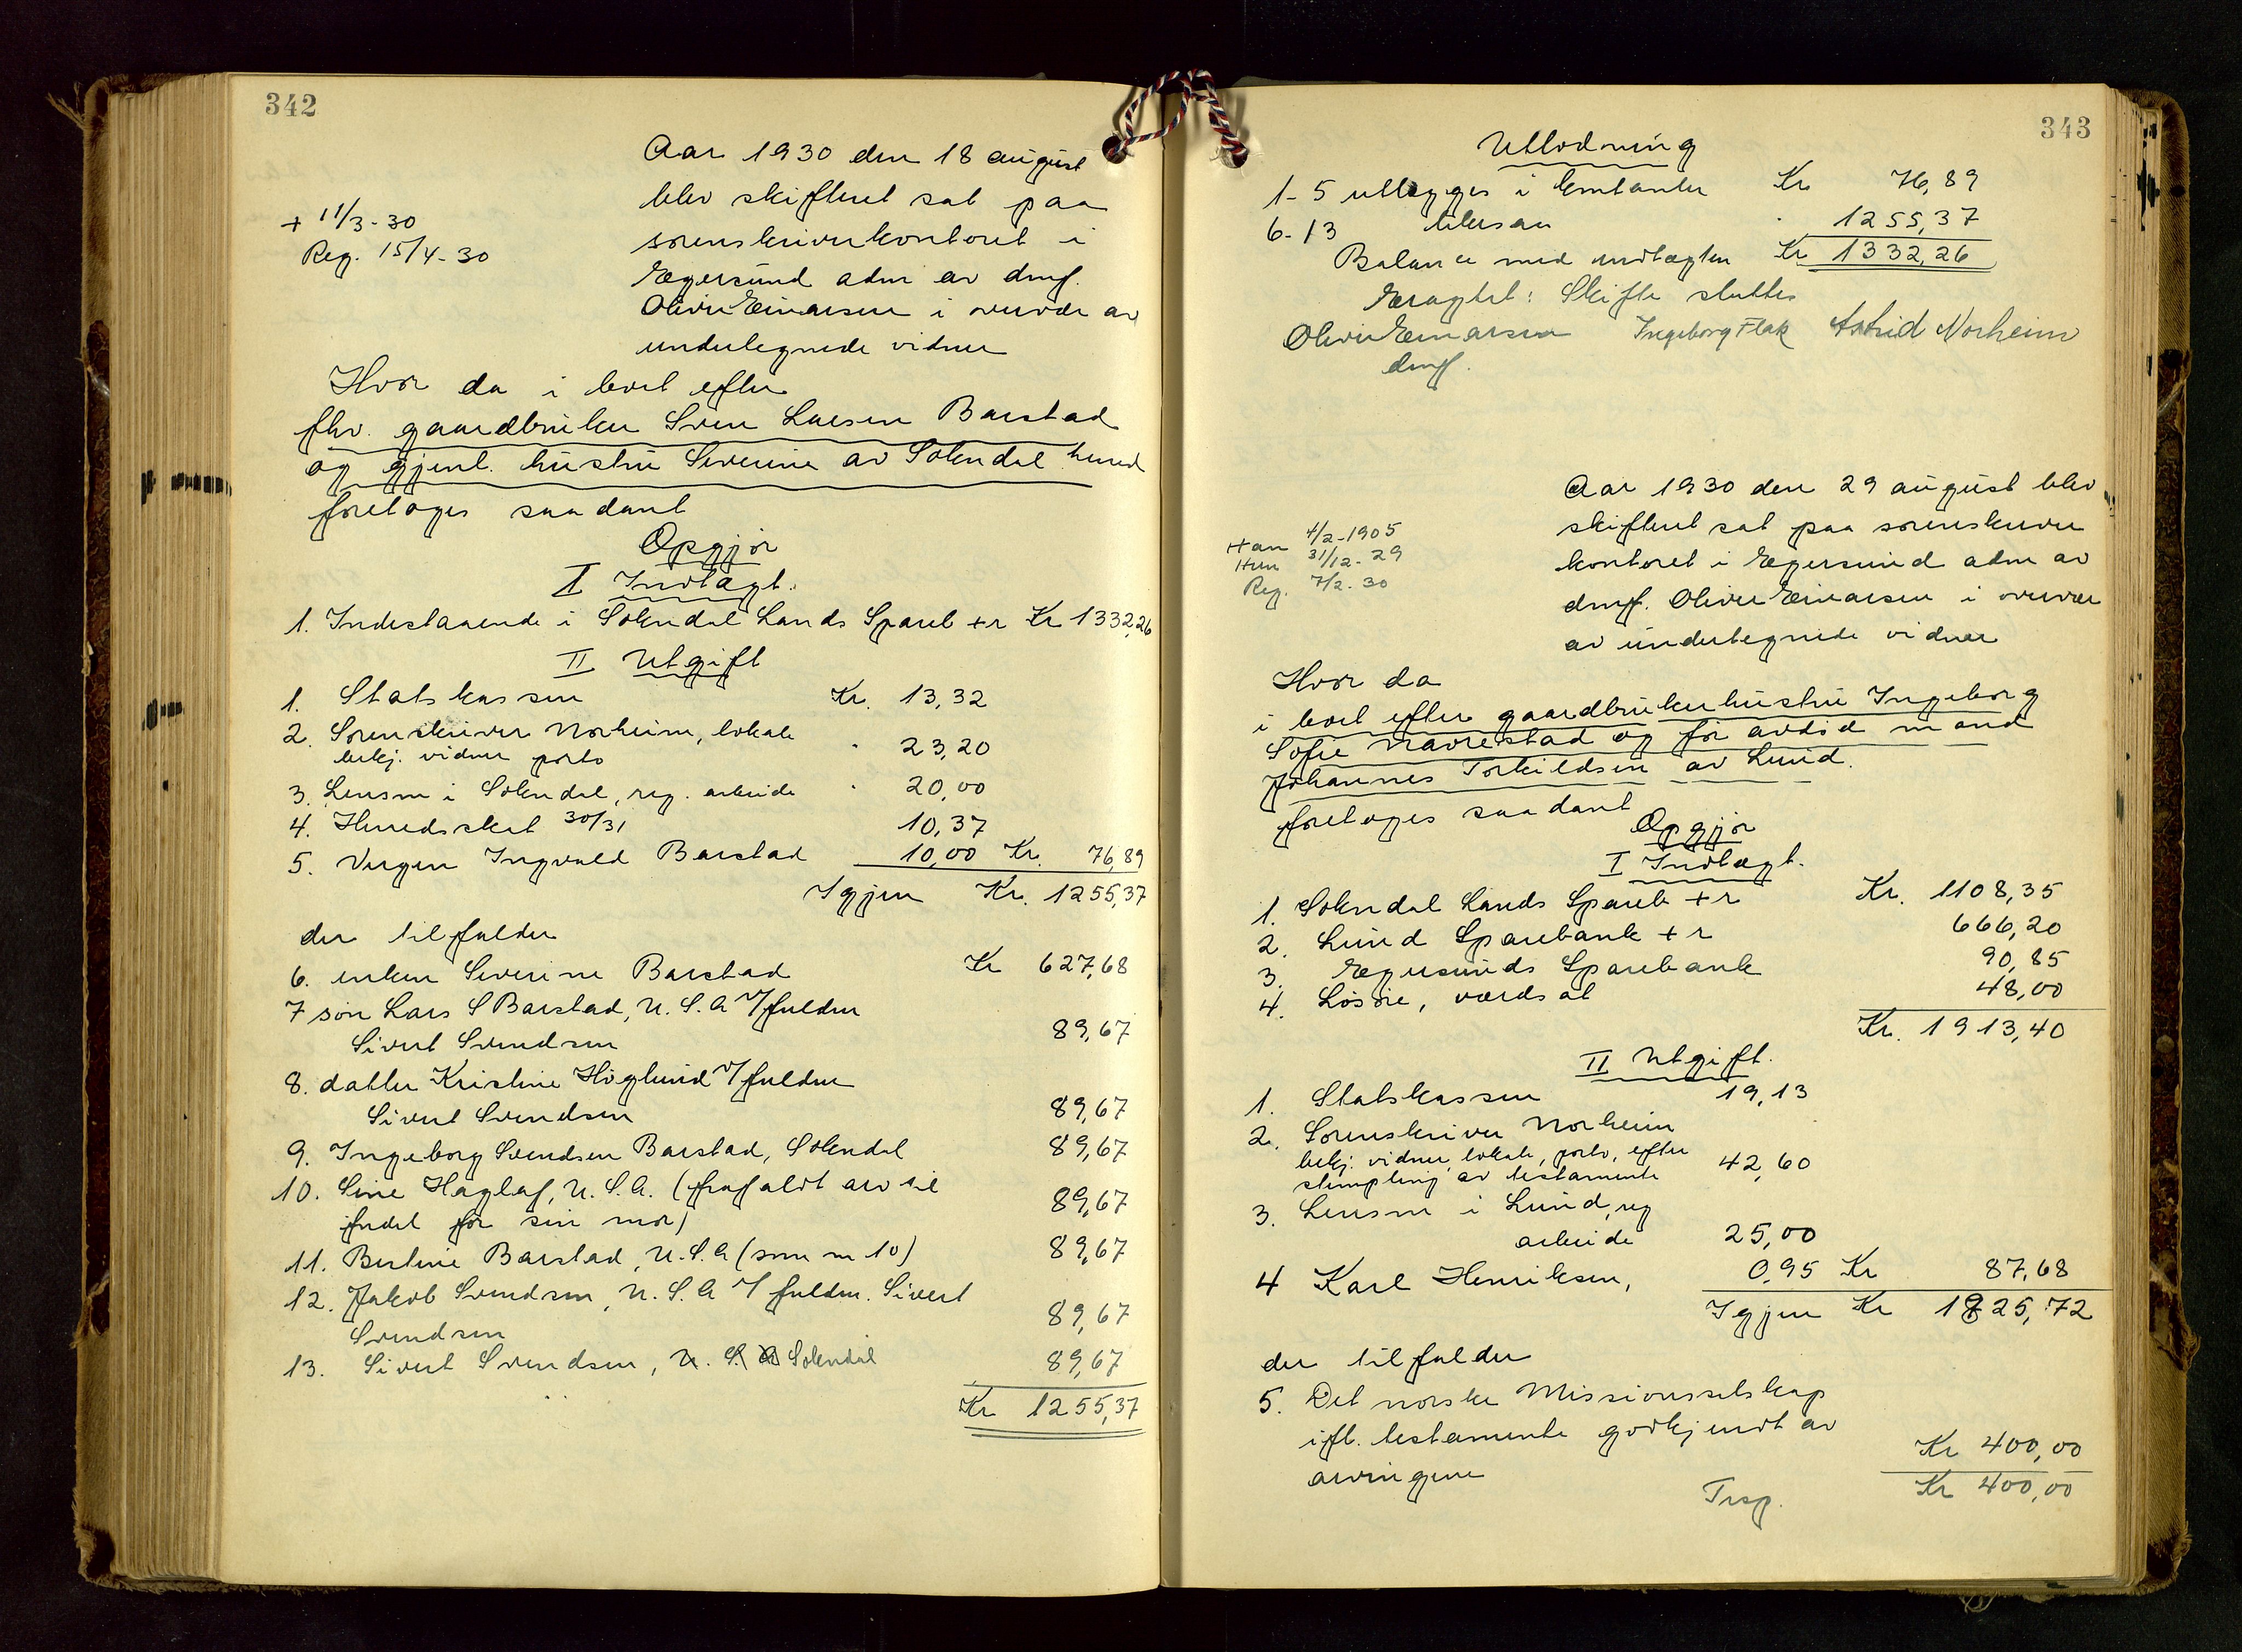 342
Aar 1930 den 18 august
blev skifteret sat paa
+ 11/3-30
Reg. 15/4-30
sorenskriverkontoret i
Egersund adm av dmf.
Oliver Einarsen i overvær av
undertegnede vidner
Hvor da i boet efter
fhv. gaardbruker Sven Larsen Barstad
og gjenl. hustru Severine av Sokndal herred
foretoges saadant
Opgjør
I Indtægt.
1. Indestaaende i Sokndal Lands Spareb + r Kr 1332,26
II Utgift
1. Statskassen Kr. 13,32
2. Sorenskriver Norheim, lokale
bekj. vidner porto " 23,20
3. Lensm i Sokndal, reg. arbeide " 20,00
4. Herredsskat 30/31 10,37
5. Vergen Ingvald Barstad 10,00 Kr. 76,89
Igjen Kr. 1255,37
der tilfalder
6. enken Severine Barstad Kr 627,68
7 søn Lars S Barstad, U.S.A v/fuldm
Sivert Svendsen 89,67
8. datter Kristine Höglund v/fuldm
Sivert Svendsen 89,67
9. Ingeborg Svendsen Barstad, Sokndal 89,67
10. Sine Haglaf, U.S.A. (frafaldt arv til
fordel for sin mor) 89,67
11. Bertine Barstad, U.S.A (som nr 10) 89,67
12. Jakob Svendsen, U.S.A v/ fuldm. Sivert
Svendsen 89,67
13. Sivert Svendsen, U.S.A Sokndal 89,67
Kr 1255,37
343
Utlodning
1-5 utlægges i kontanter Kr 76,89
6-13 likesaa " 1255,37
Balance med indtægten Kr 1332,26
Eragtet: Skifte sluttes
Oliver Einarsen Ingeborg Flak Astrid Norheim
dmf.
Aar 1930 den 29 august blev
skifteret sat paa sorenskriver
Han 4/2-1905
Hun 31/12-29
Reg. 7/2-30
kontoret i Egersund adm av
dmf. Oliver Einarsen i overvær
av undertegnede vidner
Hvor da
i boet efter gaardbrukerhustru Ingeborg
Sofie Navrestad og før avdød mand
Johannes Torkildsen av Lund.
foretoges saadant
Opgjør
I Indtægt.
1. Sokndal Lands Spareb + r Kr. 1108,35
2. Lund Sparebank + r 666,20
3. Egersunds Sparebank 90,85
4. Løsøre, værdsat 48,00
Kr. 1913,40
II Utgift.
1. Statskassen 19,13
2. Sorenskriver Norheim
bekj. vidner, lokale, porto, efter
stempling av testamente 42,60
3. Lensm i Lund, reg
arbeide 25,00
4 Karl Henriksen, 0,95 Kr 87,68
Igjen Kr 1825,72
der tilfalder
5. Det norske Missionsselskap
ifl. testamente godkjendt av
arvingene Kr 400,00
Trsp. Kr 400,00